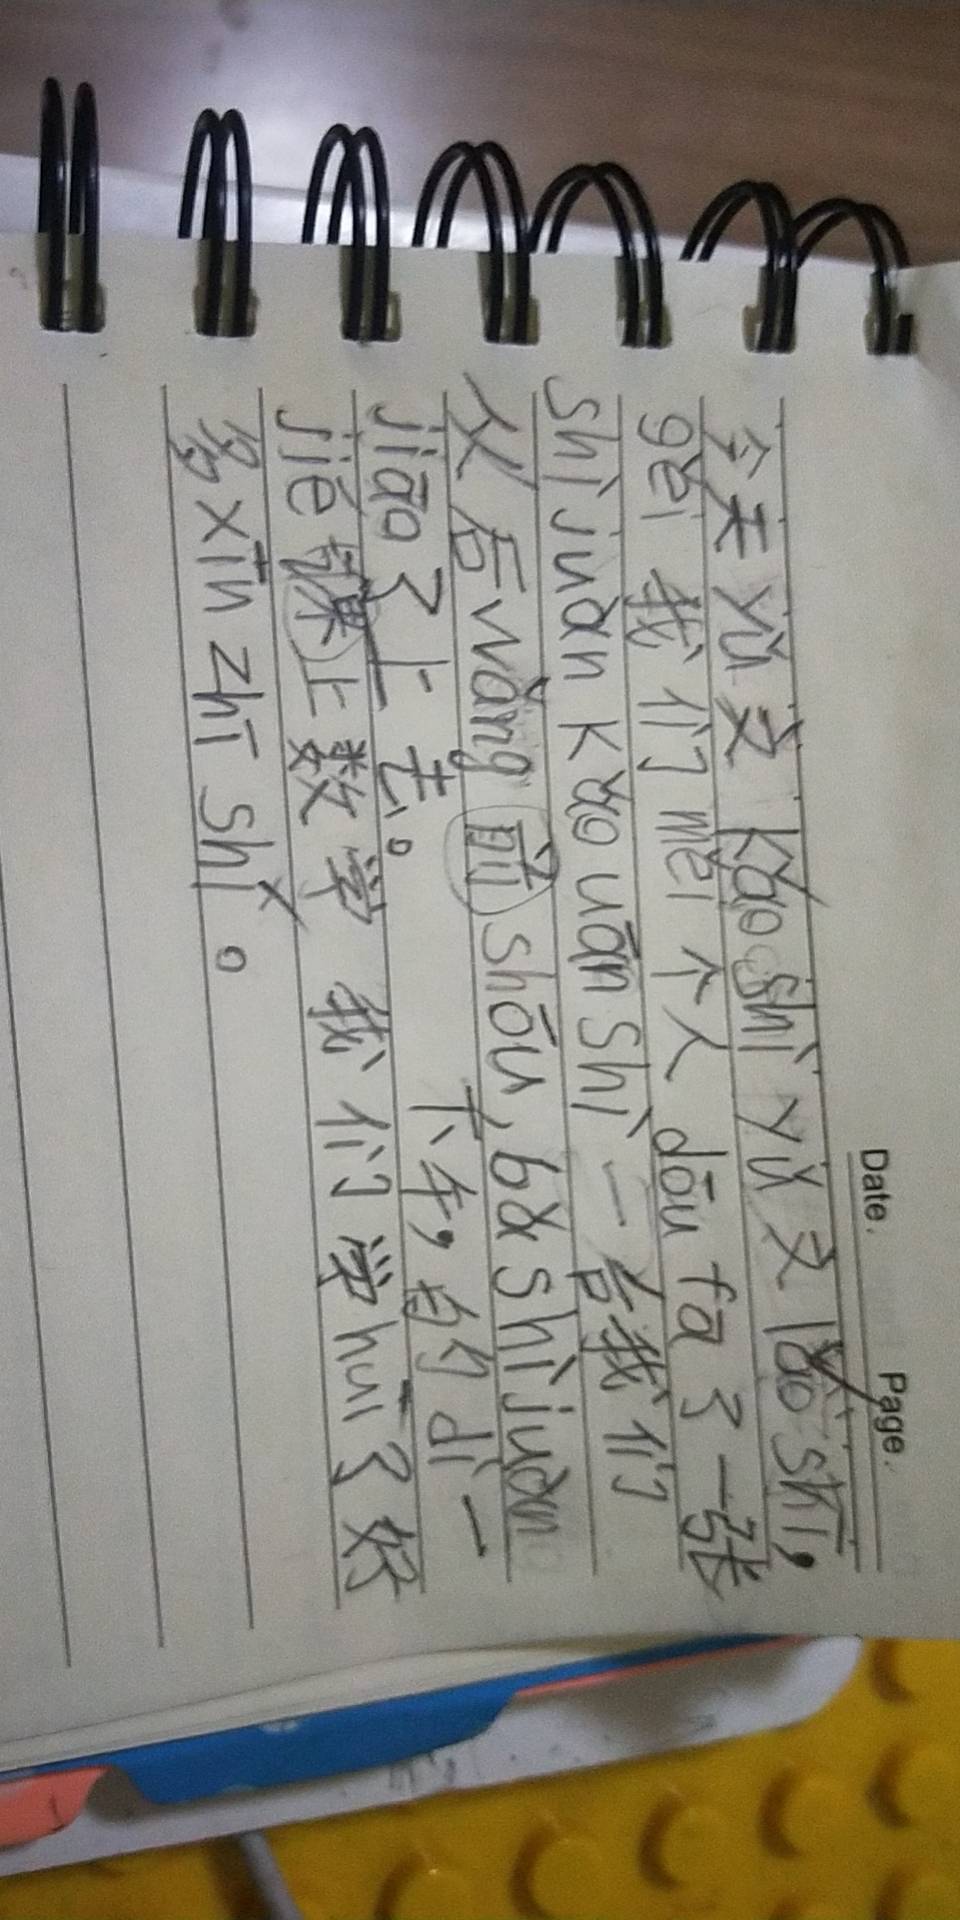 Date. Page.
今天yǔ文kǎoshì yǔ文lǎoshī,
gěi我们měi个人dōu fā了一张
shìjuàn kǎo uán shì一后我们
从后wǎng前shōu,bǎ shìjuàn
jiāo了上去。 下午,的dì一
jiē课上数学 我们学huī了好
多xīn zhī shí。